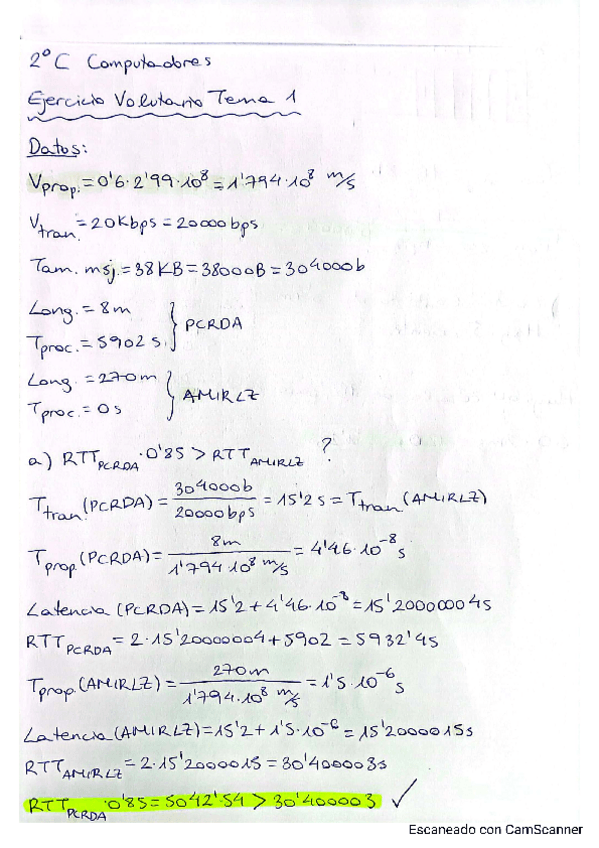 2º C Computadores
Ejercicio Voluntario Tema 1
Datos:
Vprop.=0'6·2'99·10⁸=1'794·10⁸ m/s
Vtran.=20Kbps=20000bps
Tam. msj.=38KB=38000B=304000b
Long.=8m
Tproc.=5902 s.
} PCRDA
Long.=270m
Tproc.=0s
} AMIRLZ
a) RTT_PCRDA·0'85 > RTT_AMIRLZ ?
Ttran.(PCRDA)= 304000b / 20000bps =15'2 s=Ttran.(AMIRLZ)
Tprop.(PCRDA)= 8m / 1'794·10⁸ m/s = 4'46·10⁻⁸ s
Latencia (PCRDA)=15'2+4'46·10⁻⁸=15'20000004s
RTT_PCRDA=2·15'20000004+5902=5932'4s
Tprop.(AMIRLZ)= 270m / 1'794·10⁸ m/s =1'5·10⁻⁶ s
Latencia (AMIRLZ)=15'2+1'5·10⁻⁶=15'2000015s
RTT_AMIRLZ=2·15'2000015=30'400003s
RTT_PCRDA·0'85=5042'54 > 30'400003 ✓
Escaneado con CamScanner